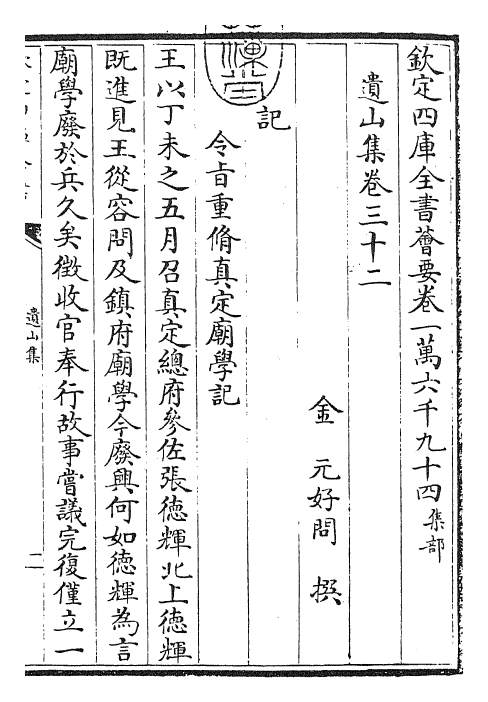 欽定四庫全書薈要卷一萬六千九十四集部
遺山集卷三十二
金 元好問 撰
記
令旨重脩真定廟學記
王以丁未之五月召真定總府參佐張徳輝北上徳輝
既進見王從容問及鎮府廟學今廢興何如徳輝為言
廟學廢於兵久矣徵收官奉行故事嘗議完復僅立一
遺山集